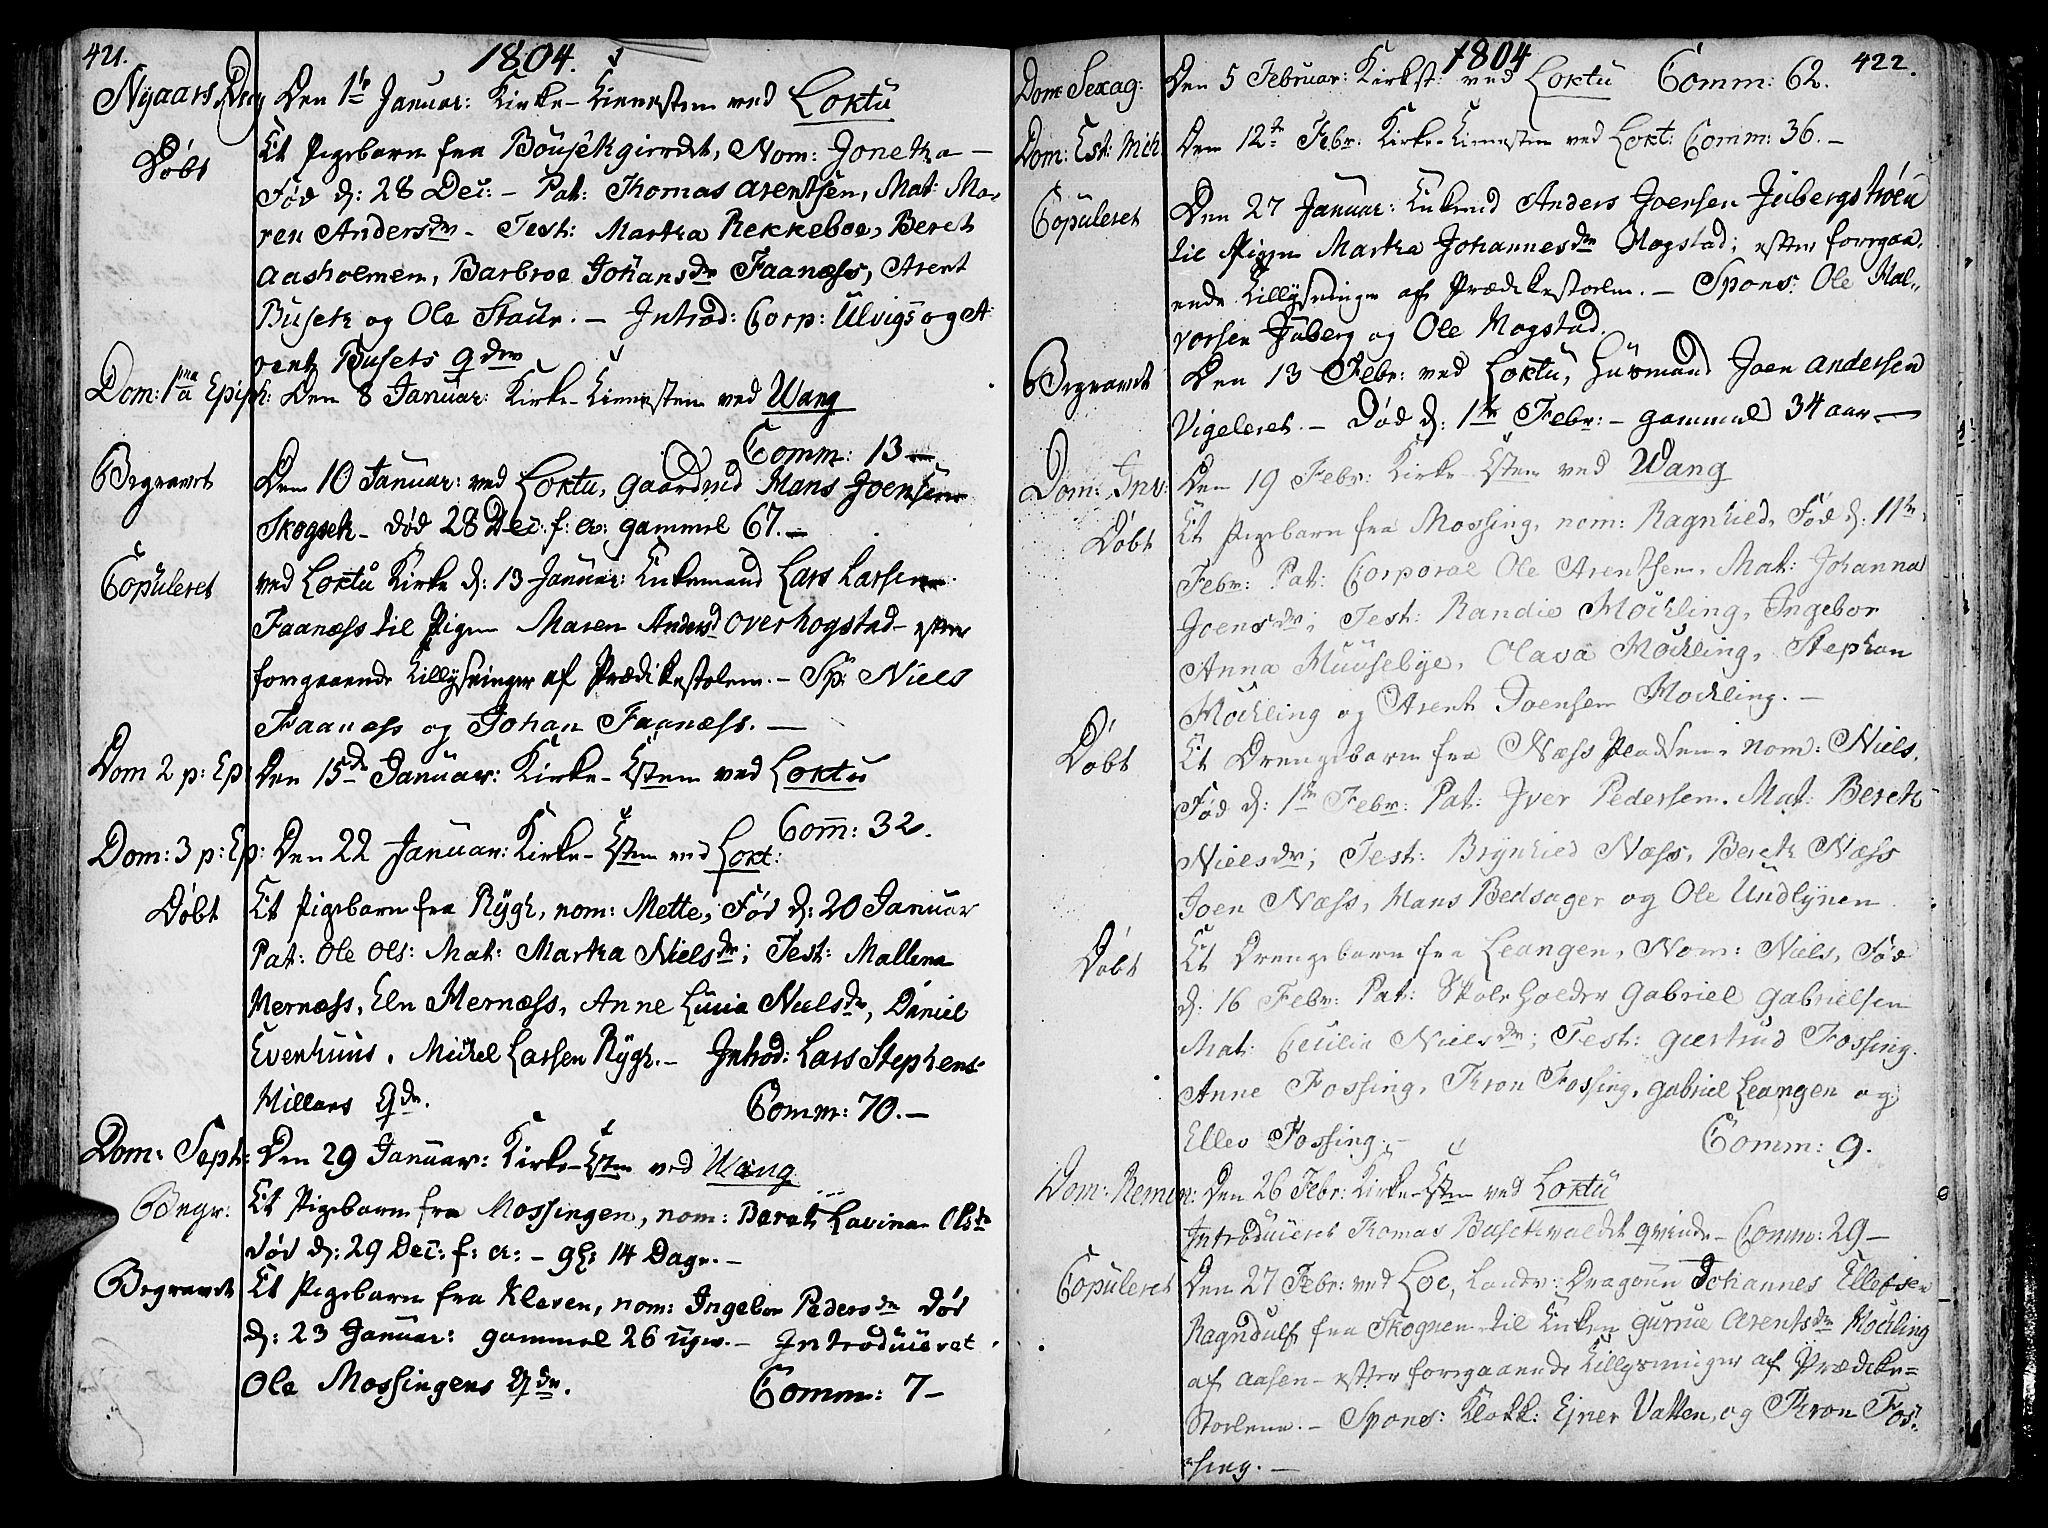 421.
1804.
Nyaars Dag Den 1te Januar: Kirke-Tienesten ved Loktu
Døbt Et Pigebarn fra Bousetgierdet, Nom: Joneta -
Fød d: 28 Dec: - Pat: Thomas Arentsen, Mat: Ma-
ren Andersdr - Test: Martha Rekkeboe, Beret
Aasholmen, Barbroe Johansdr Faanæss, Arent
Busetr og Ole Staur. - Introd: Corp: Ulvigs og A-
rent Busets Qdr
Dom: 1ma a Epiph: Den 8 Januar: Kirke-Tienesten ved Wang
Comm: 13 -
Begravet Den 10 Januar: ved Loktu, gaardmd Hans Joensen
Skogset - død 28 Dec: f: a: gammel 67. -
Copuleret ved Loktu Kirke d: 13 Januar: Enkemand Lars Larsen
Faanæss til Pigen Maren Andersd Overhogstad - efter
forgaaende Tillysninger af Prædikestolen. - Sp: Niels
Faanæss og Johan Faanæss. -
Dom 2 p: Ep: Den 15de Januar: Kirke-Tsten ved Loktu
Comm: 32.
Dom: 3 p: Ep: Den 22 Januar: Kirke-Tsten ved Lokt:
Døbt Et Pigebarn fra Rygh, nom: Mette, Fød d: 20 Januar
Pat: Ole Ols: Mat: Martha Nielsdr; Test: Mallena
Hernæss, Eln Hernæss, Anne Lucia Nielsdr, Daniel
Evenhuus, Michel Larsen Rygh. - Introd: Lars Stephens
Hillans Qdr.
Comm: 70. -
Dom: Sept: Den 29 Januar: Kirke-Tsten ved Wang
Begr: Et Pigebarn fra Mossingen, nom: Beret Lavina Olsdr
død d: 29 Dec: f: a: - gl: 14 Dage. -
Begravet Et Pigebarn fra Kleven, nom: Ingebor Pedersdr død
d: 23 Januar: gammel 26 uger. - Introduceret
Ole Mossingens Qdr.
Comm: 7 -
1804
422.
Dom: Sexag: Den 5 Februar: Kirkst: ved Loktu Comm: 62.
Dom: Est: Mih Den 12te Febr: Kirke-Tienesten ved Lokt: Comm: 36. -
Copuleret Den 27 Januar: Enkemd Anders Joensen Jubergstrøen
til Pigen Martha Johannesdr Hogstad; efter forgaa-
ende Tillysninger af Prædikestolen. - Spons: Ole Hal-
vorsen Juberg og Ole Hogstad.
Begravet Den 13 Febr: ved Loktu, Husmand Joen Andersen
Vigeleret. - Død d: 1te Febr: - gammel 34 aar -
Dom: Inv: Den 19 Febr: Kirke-Tsten ved Wang
Døbt Et Pigebarn fra Mossing, nom: Ragnhled, Fød d: 11te
Febr: Pat: Corporal Ole Arentsen, Mat: Johanna
Joensdr; Test: Randie Møchling, Ingebor
Anna Huusebye, Olava Møchling, Stephan
Møchling og Arent Joensen Møchling. -
Døbt Et Drengebarn fra Næss Pladsen, nom: Niels,
Fød d: 1te Febr: Pat: Iver Pedersen. Mat: Bereth
Nielsdr; Test: Brynhled Næss, Bereth Næss
Joen Næss, Hans Bedsager og Ole Undlynen
Døbt Et Drengebarn fra Leangen, Nom: Niels, Fød
d: 16 Febr: Pat: Skoleholder Gabriel Gabrielsen
Mat: Cecilia Nielsdr; Test: Giertrud Fossing.
Anne Fossing, Tron Fossing, Gabriel Leangen og
Ellev Fossing. -
Comm: 9.
Dom: Remin: Den 26 Febr: Kirke-Tsten ved Loktu
Introduceret Thomas Busetvaldet qvinde - Comm: 29 -
Copuleret Den 27 Febr: ved Loe, Landv: Dragoun Johannes Ellefsen
Ragndulf fra Skognen til Enken Gurrue Arentsdr Møchling
af Aasen - efter forgaaende Tillysninger af Prædike-
Stolene. - Spons: Klokk: Ejner Vatten, og Tron Fos-
sing. -